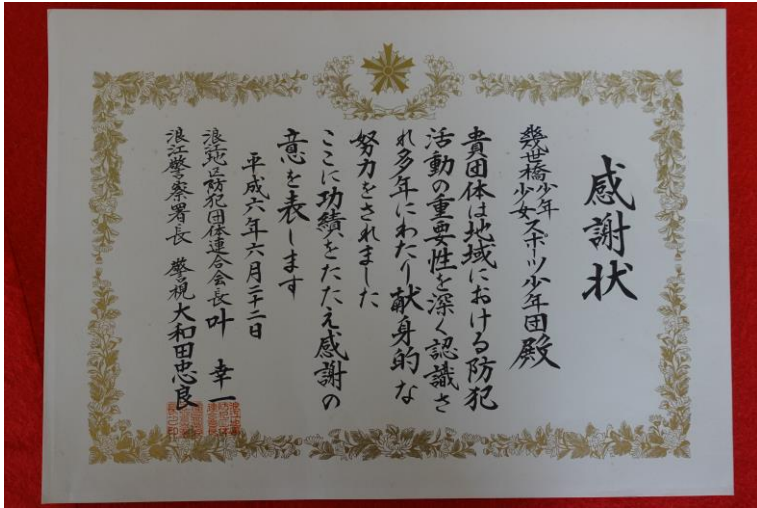 感謝状
幾世橋少年少女スポーツ少年団殿
貴団体は地域における防犯
活動の重要性を深く認識さ
れ多年にわたり献身的な
努力をされました
ここに功績をたたえ感謝の
意を表します
平成六年六月二十二日
浪江地区防犯団体連合会長 叶 幸一
浪江警察署長 警視 大和田忠良